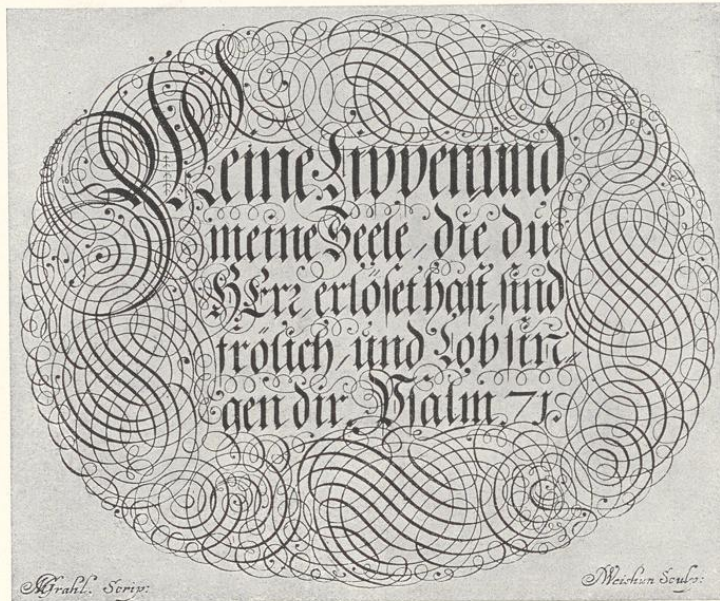 Meine Lippen und
meine Seele, die du
HErr erlöset hast, sind
frölich, und Lobsin„
gen dir. Psalm. 71.
MGrahl. Scrip:
NWeishun Sculp: